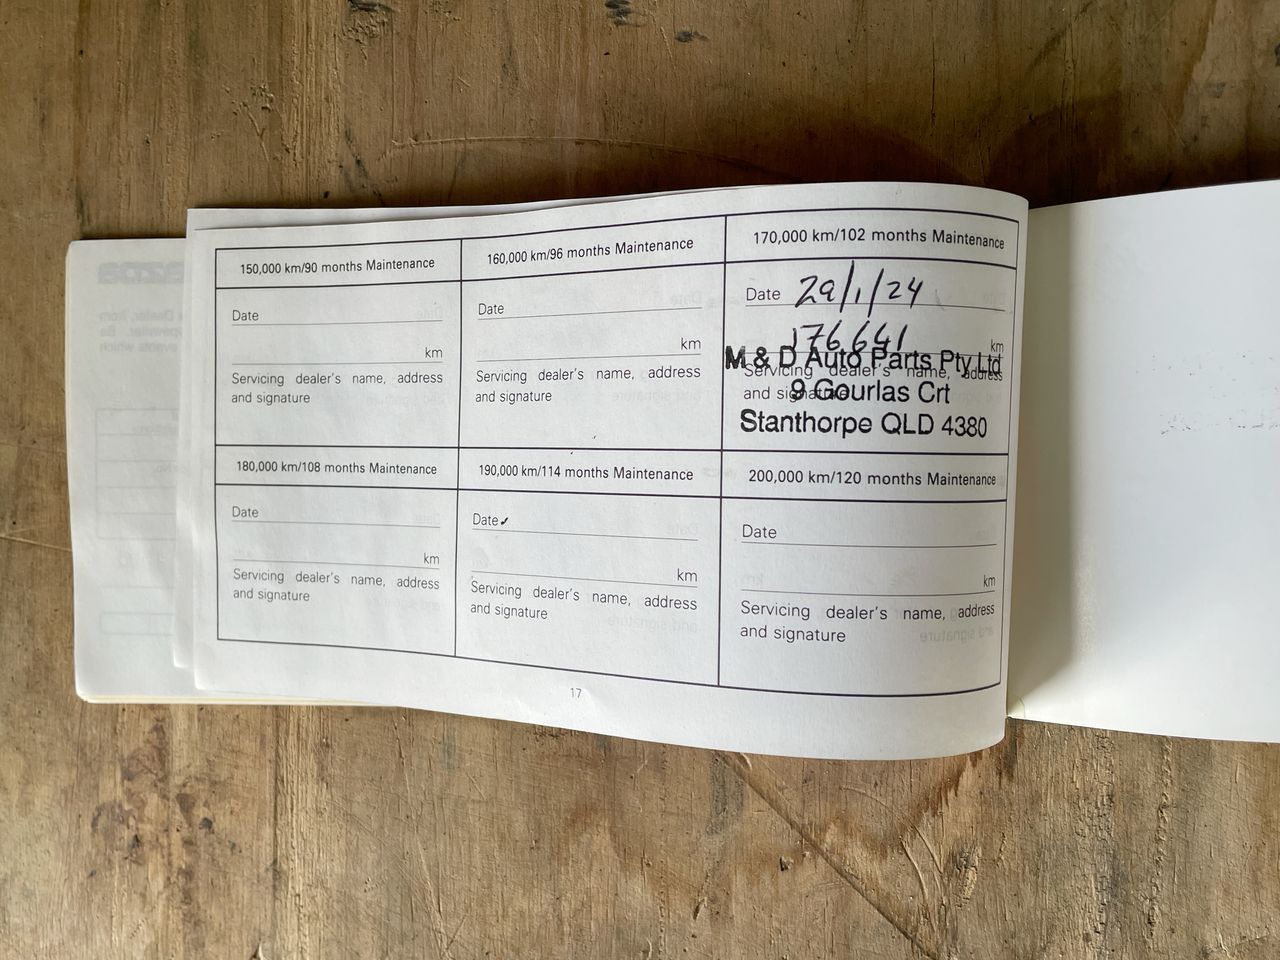 150,000 km/90 months Maintenance
Date
km
Servicing dealer's name, address
and signature
160,000 km/96 months Maintenance
Date
km
Servicing dealer's name, address
and signature
170,000 km/102 months Maintenance
Date 29/1/24
176641 km
Servicing dealer's name, address
and signature
M & D Auto Parts Pty Ltd
9 Gourlas Crt
Stanthorpe QLD 4380
180,000 km/108 months Maintenance
Date
km
Servicing dealer's name, address
and signature
190,000 km/114 months Maintenance
Date
km
Servicing dealer's name, address
and signature
200,000 km/120 months Maintenance
Date
km
Servicing dealer's name, address
and signature
17